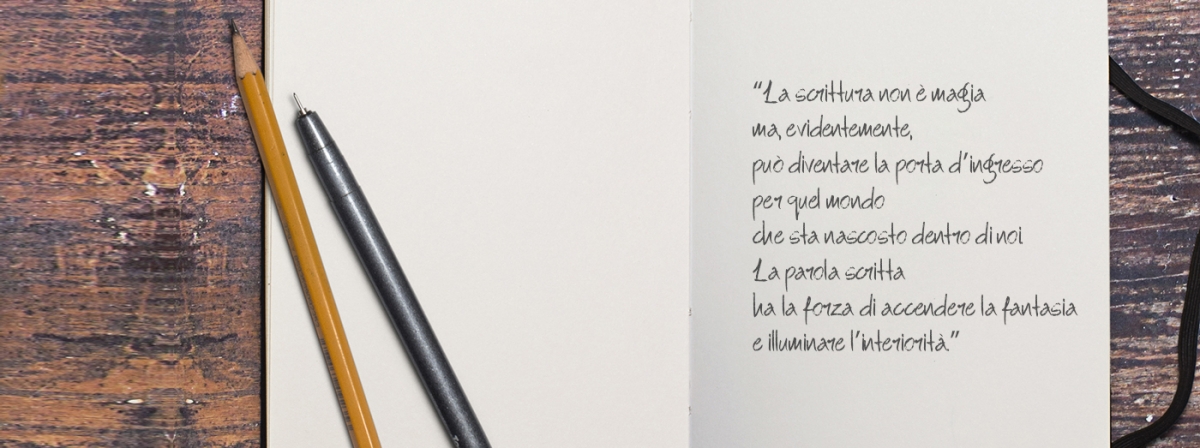 “La scrittura non è magia
ma, evidentemente,
può diventare la porta d'ingresso
per quel mondo
che sta nascosto dentro di noi.
La parola scritta
ha la forza di accendere la fantasia
e illuminare l'interiorità.”